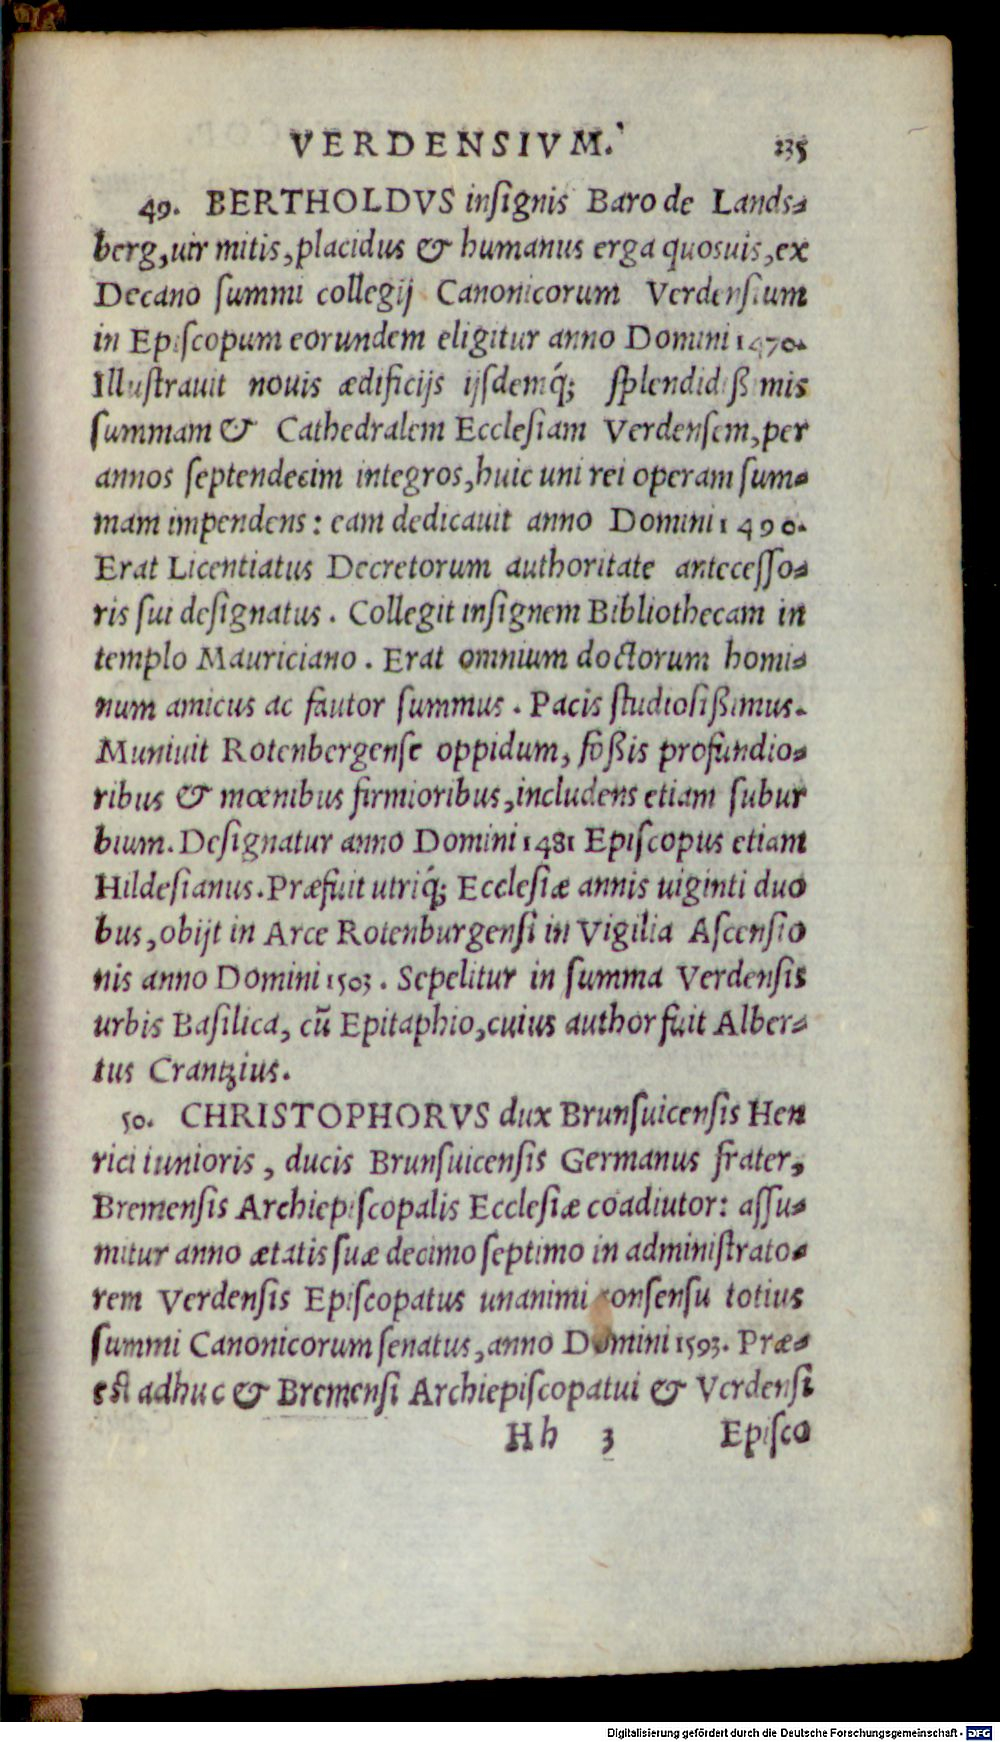 VERDENSIVM. 235
49. BERTHOLDVS inſignis Baro de Lands-
berg, uir mitis, placidus & humanus erga quosuis, ex
Decano ſummi collegij Canonicorum Verdenſium
in Epiſcopum eorundem eligitur anno Domini 1470.
Illuſtrauit nouis ædificijs ijſdemq́; ſplendidißimis
ſummam & Cathedralem Eccleſiam Verdenſem, per
annos ſeptendecim integros, huic uni rei operam ſum-
mam impendens: eam dedicauit anno Domini 1490.
Erat Licentiatus Decretorum authoritate anteceſſo-
ris ſui deſignatus. Collegit inſignem Bibliothecam in
templo Mauriciano. Erat omnium doctorum homi-
num amicus ac fautor ſummus. Pacis ſtudioſißimus.
Muniuit Rotenbergenſe oppidum, foßis profundio-
ribus & mœnibus firmioribus, includens etiam ſubur
bium. Deſignatur anno Domini 1481 Epiſcopus etiam
Hildeſianus. Præfuit utriq́; Eccleſiæ annis uiginti duo
bus, obijt in Arce Rotenburgenſi in Vigilia Aſcenſio
nis anno Domini 1503. Sepelitur in ſumma Verdenſis
urbis Baſilica, cū Epitaphio, cuius author fuit Alber-
tus Crantzius.
50. CHRISTOPHORVS dux Brunſuicenſis Hen
rici iunioris, ducis Brunſuicenſis Germanus frater,
Bremenſis Archiepiſcopalis Eccleſiæ coadiutor: aſſu-
mitur anno ætatis ſuæ decimo ſeptimo in adminiſtrato-
rem Verdenſis Epiſcopatus unanimi conſenſu totius
ſummi Canonicorum ſenatus, anno Domini 1593. Præ-
eſt adhuc & Bremenſi Archiepiſcopatui & Verdenſi
Hh 3 Epiſco
Digitalisierung gefördert durch die Deutsche Forschungsgemeinschaft - DFG